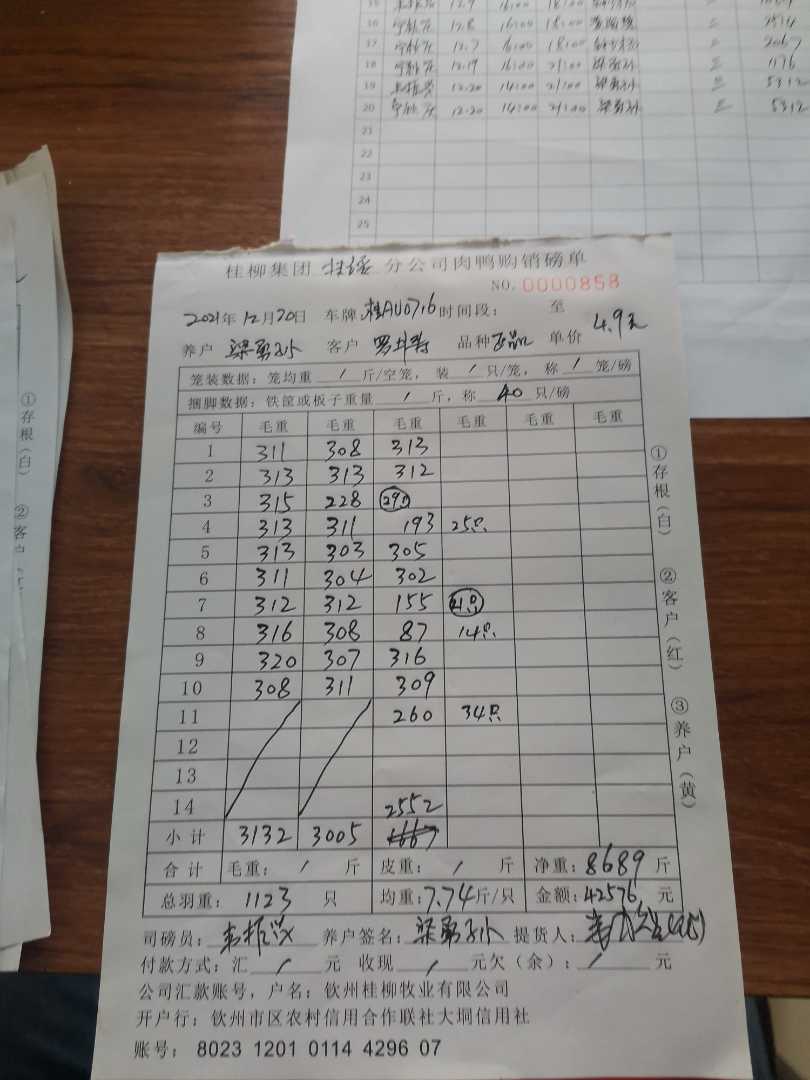 15 12.9 16:00 18:00
16 12.8 16:00 18:00 二 2514
17 12.7 16:00 18:00 二 2067
18 12.19 16:00 21:00 梁勇孙 三 1176
19 12.20 14:00 21:00 梁勇孙 三 5312
20 12.20 14:00 21:00 梁勇孙 三 5312
21
22
23
24
25
桂柳集团 分公司肉鸭购销磅单
NO. 0000858
2021年12月20日 车牌:桂AU0716 时间段: 至
养户 梁勇孙 客户 品种 正品 单价 4.9元
笼装数据:笼均重 / 斤/空笼,装 / 只/笼,称 / 笼/磅
捆脚数据:铁筐或板子重量 / 斤,称 40 只/磅
编号 毛重 毛重 毛重 毛重 毛重 毛重
1 311 308 313
2 313 313 312
3 315 228 29只
4 313 311 193 25只
5 313 303 305
6 311 304 302
7 312 312 155 21只
8 316 308 87 14只
9 320 307 316
10 308 311 309
11 260 34只
12
13
14 2552
小计 3132 3005
合计 毛重: / 斤 皮重: / 斤 净重: 8689 斤
总羽重: 1123 只 均重: 7.74 斤/只 金额: 42576 元
司磅员: 韦振兴 养户签名: 梁勇孙 提货人:
付款方式:汇 / 元 收现 / 元欠(余): / 元
公司汇款账号,户名:钦州桂柳牧业有限公司
开户行:钦州市区农村信用合作联社大垌信用社
账号: 8023 1201 0114 4296 07
①存根(白) ②客户(红) ③养户(黄)
①存根(白) ②客户